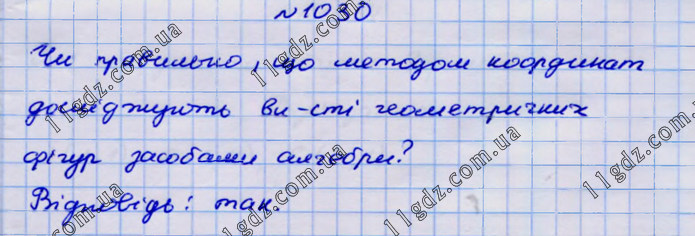 №1030
Чи правильно, що методом координат
досліджують вл-сті геометричних
фігур засобами алгебри?
Відповідь: так.
11gdz.com.ua
11gdz.com.ua
11gdz.com.ua
11gdz.com.ua
11gdz.com.ua